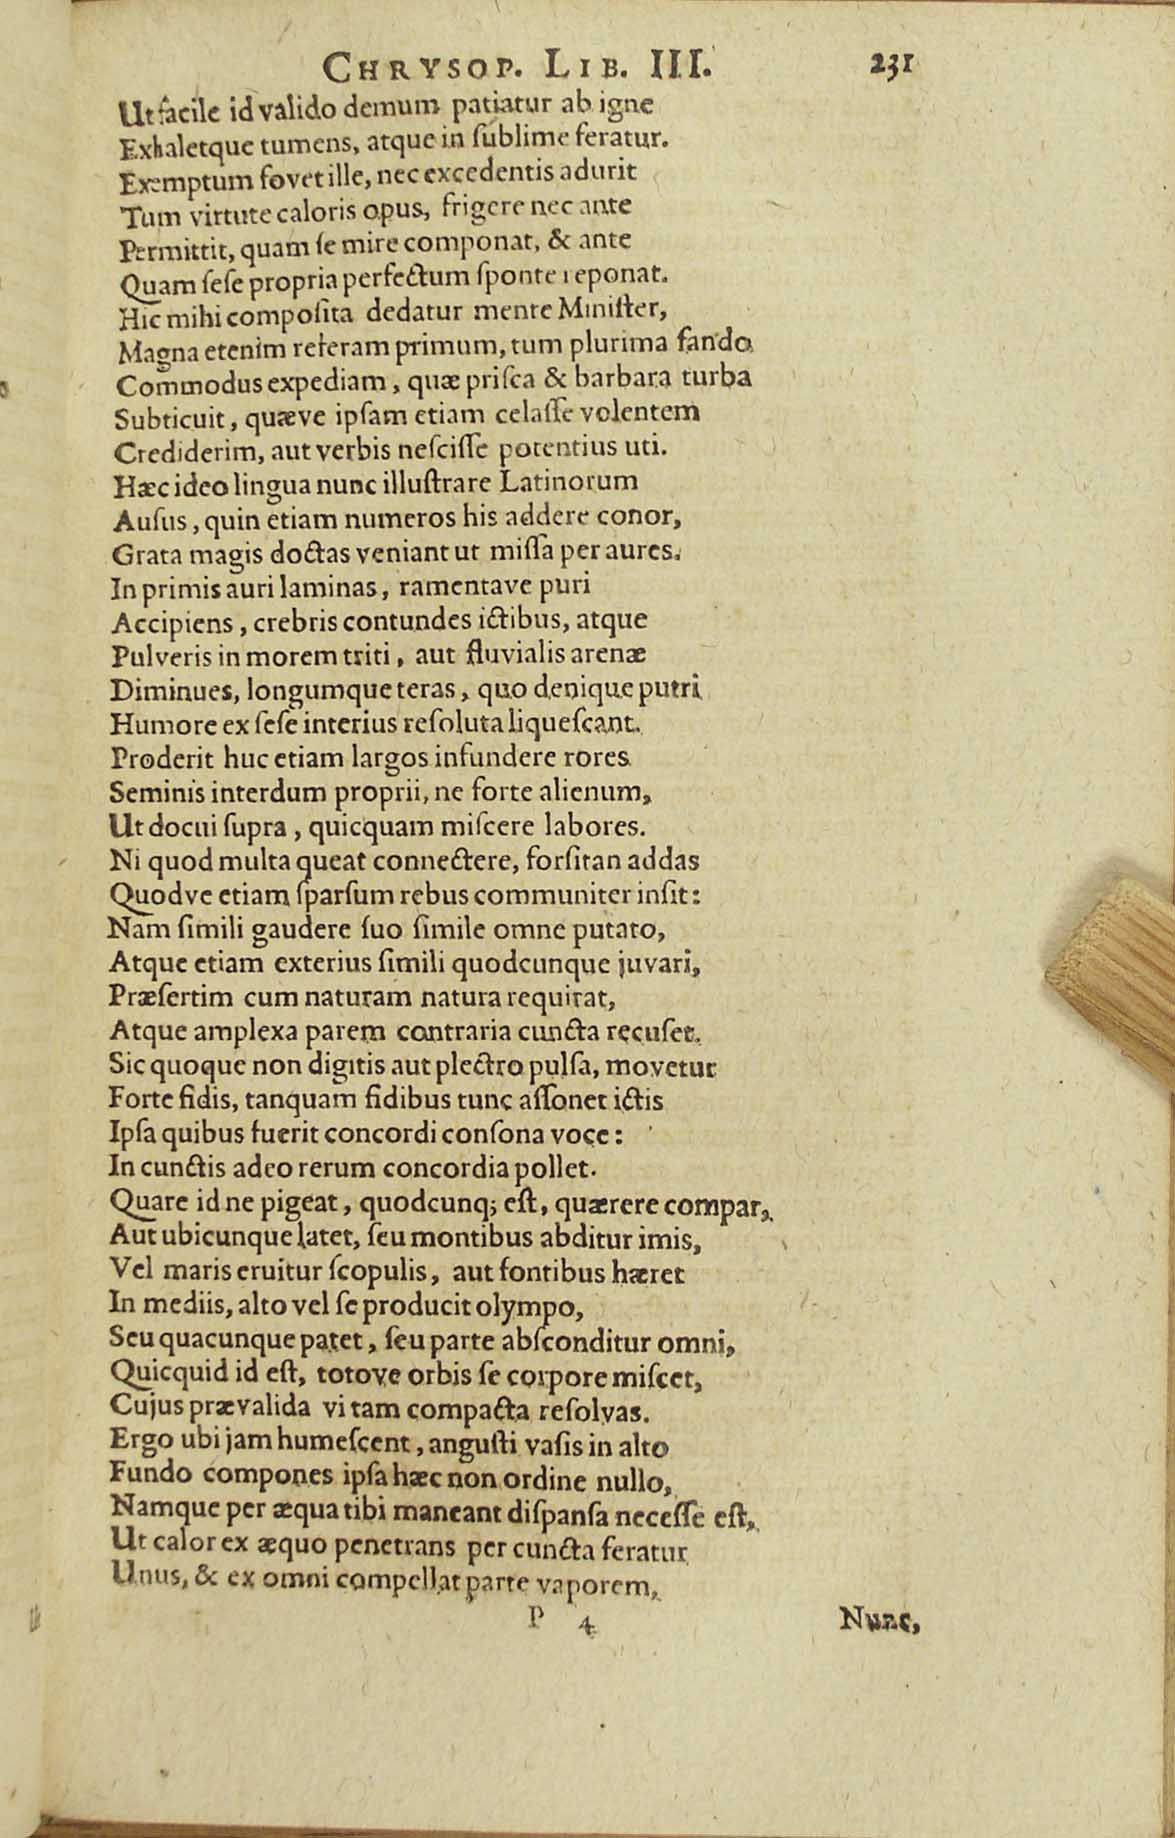 CHRYSOP. LIB. III. 231
Ut facile id valido demum patiatur ab igne
Exhaletque tumens, atque in ſublime feratur.
Exemptum fovet ille, nec excedentis adurit
Tum virtute caloris opus, frigere nec ante
Permittit, quam ſe mire componat, & ante
Quam ſeſe propria perfectum ſponte reponat.
Hic mihi compoſita dedatur mente Miniſter,
Magna etenim referam primum, tum plurima fando
Commodus expediam, quæ priſca & barbara turba
Subticuit, quæve ipſam etiam celaſſe volentem
Crediderim, aut verbis neſciſſe potentius uti.
Hæc ideo lingua nunc illuſtrare Latinorum
Auſus, quin etiam numeros his addere conor,
Grata magis doctas veniant ut miſſa per aures.
In primis auri laminas, ramentave puri
Accipiens, crebris contundes ictibus, atque
Pulveris in morem triti, aut fluvialis arenæ
Diminues, longumque teras, quo denique putri
Humore ex ſeſe interius reſoluta liqueſcant.
Proderit huc etiam largos infundere rores
Seminis interdum proprii, ne forte alienum,
Ut docui ſupra, quicquam miſcere labores.
Ni quod multa queat connectere, forſitan addas
Quodve etiam ſparſum rebus communiter inſit:
Nam ſimili gaudere ſuo ſimile omne putato,
Atque etiam exterius ſimili quodcunque juvari,
Præſertim cum naturam natura requirat,
Atque amplexa parem contraria cuncta recuſet.
Sic quoque non digitis aut plectro pulſa, movetur
Forte fidis, tanquam fidibus tunc aſſonet ictis
Ipſa quibus fuerit concordi conſona voce:
In cunctis adeo rerum concordia pollet.
Quare id ne pigeat, quodcunq; eſt, quærere compar,
Aut ubicunque latet, ſeu montibus abditur imis,
Vel maris eruitur ſcopulis, aut fontibus hæret
In mediis, alto vel ſe producit olympo,
Seu quacunque patet, ſeu parte abſconditur omni,
Quicquid id eſt, totove orbis ſe corpore miſcet,
Cujus prævalida vi tam compacta reſolvas.
Ergo ubi jam humeſcent, anguſti vaſis in alto
Fundo compones ipſa hæc non ordine nullo,
Namque per æqua tibi maneant diſpanſa neceſſe eſt,
Ut calor ex æquo penetrans per cuncta feratur
Unus, & ex omni compellat parte vaporem,
P 4 Nunc,